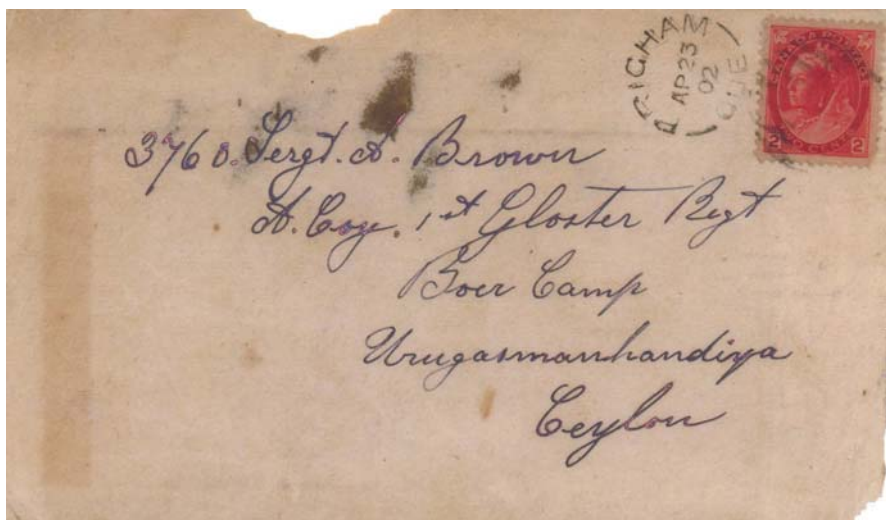 BRIGHAM
AP 23
02
QUE
CANADA POSTAGE
2 TWO CENTS 2
3760. Sergt. A. Brown
A. Coy. 1st Gloster Regt
Boer Camp
Urugasmanhandiya
Ceylon